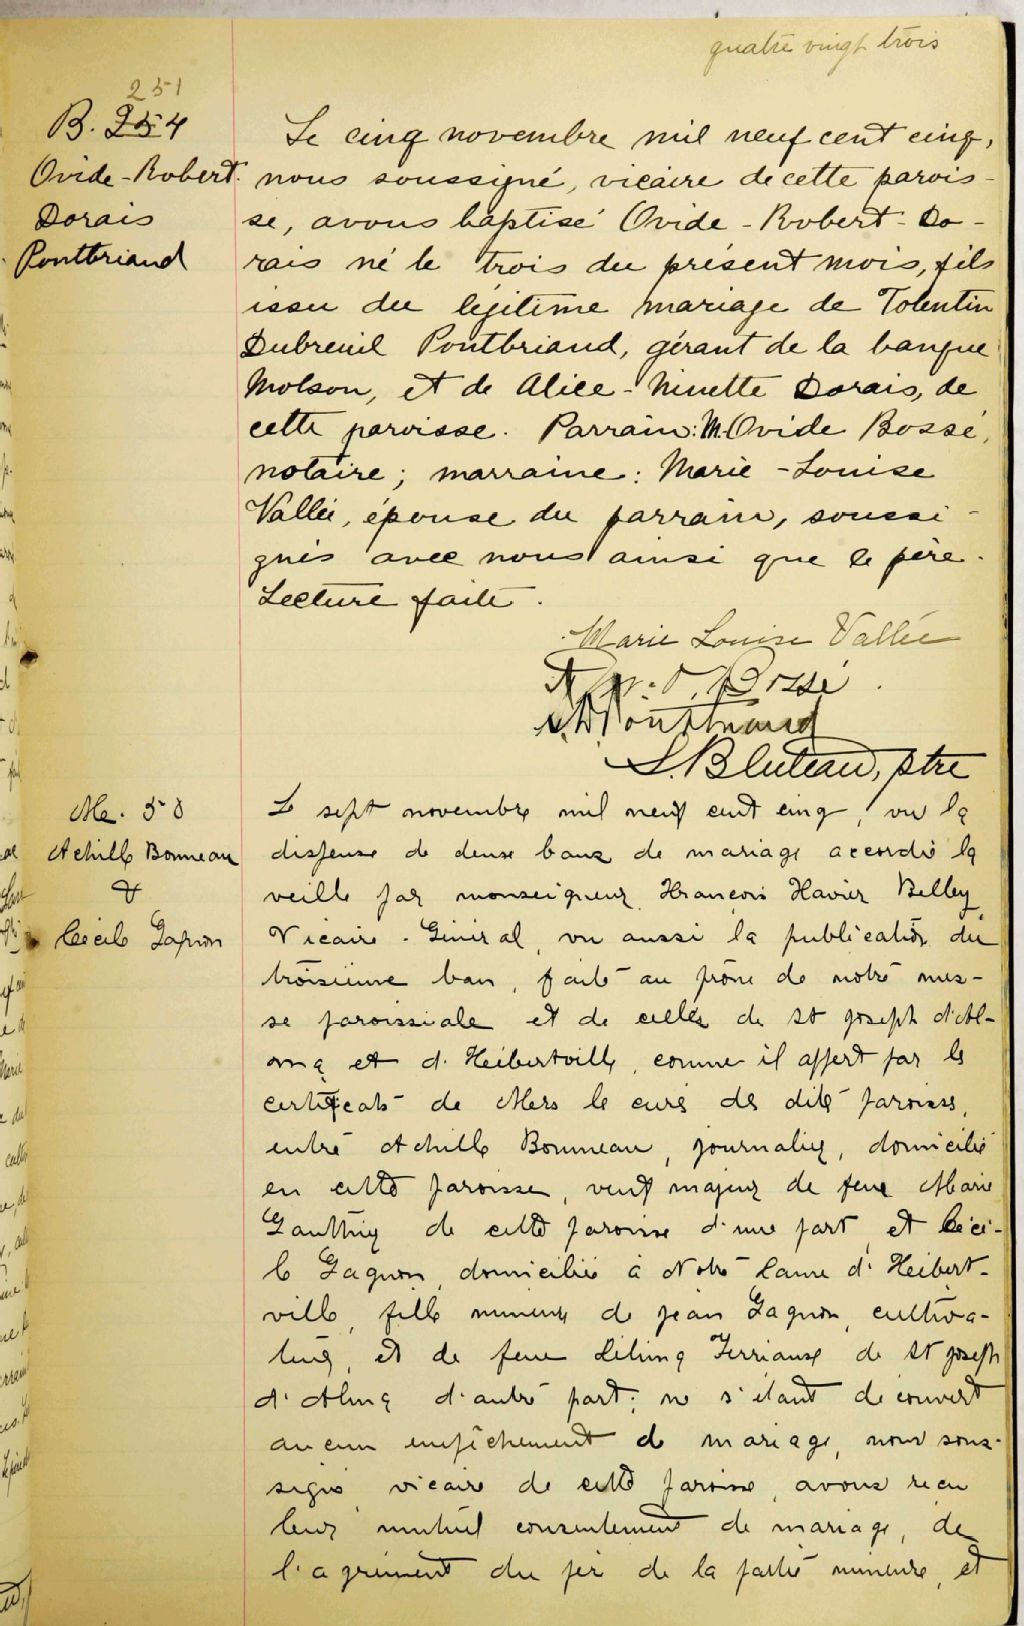 quatre vingt trois
251
B. 254
Ovide-Robert
Dorais
Pontbriand
Le cinq novembre mil neuf cent cinq,
nous soussigné, vicaire de cette parois-
se, avons baptisé Ovide-Robert-Do-
rais né le trois du présent mois, fils
issu du légitime mariage de Tolentin
Dubreuil Pontbriand, gérant de la banque
Molson, et de Alice-Ninette Dorais, de
cette paroisse. Parrain: M. Ovide Bossé,
notaire; marraine: Marie-Louise
Vallée, épouse du parrain, soussi-
gnés avec nous ainsi que le père.
Lecture faite.
Marie Louise Vallée
O. Bossé
Pontbriand
L. Bluteau, ptre
M. 50
Achille Bonneau
&
Cécile Gagnon
Le sept novembre mil neuf cent cinq, vu la
dispense de deux bans de mariage accordée la
veille par monseigneur François Xavier Belley
Vicaire-Général, vu aussi la publication du
troisième ban, faite au prône de notre mes-
se paroissiale et de celles de St Joseph d'Al-
ma et d'Hébertville, comme il appert par les
certificats de Mess les curés des dites paroisses,
entre Achille Bonneau, journalier, domicilié
en cette paroisse, veuf majeur de feue Marie
Gauthier de cette paroisse d'une part, et Céci-
le Gagnon, domiciliée à Notre Dame d'Hébert-
ville, fille mineure de Jean Gagnon, cultiva-
teur, et de feue Délima Perriause de St Joseph
d'Alma d'autre part; ne s'étant découvert
aucun empêchement de mariage, nous sous-
signé vicaire de cette paroisse, avons reçu
leur mutuel consentement de mariage, de
l'agrément du père de la partie mineure, et